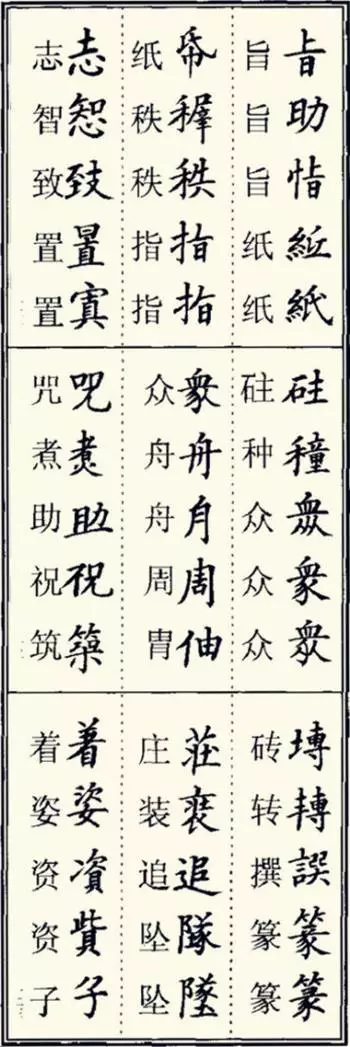 㫖恉紙
旨旨旨纸纸
帋秩指指
纸秩秩指指
志致置寘
志智致置置
穜眾衆衆
砫种众众众
衆舟月周伷
众舟舟周胄
咒煮助祝築
咒煮助祝筑
塼轉篆篆
砖转撰篆篆
莊追隊墜
庄装追坠坠
着姿資貲子
着姿资资子